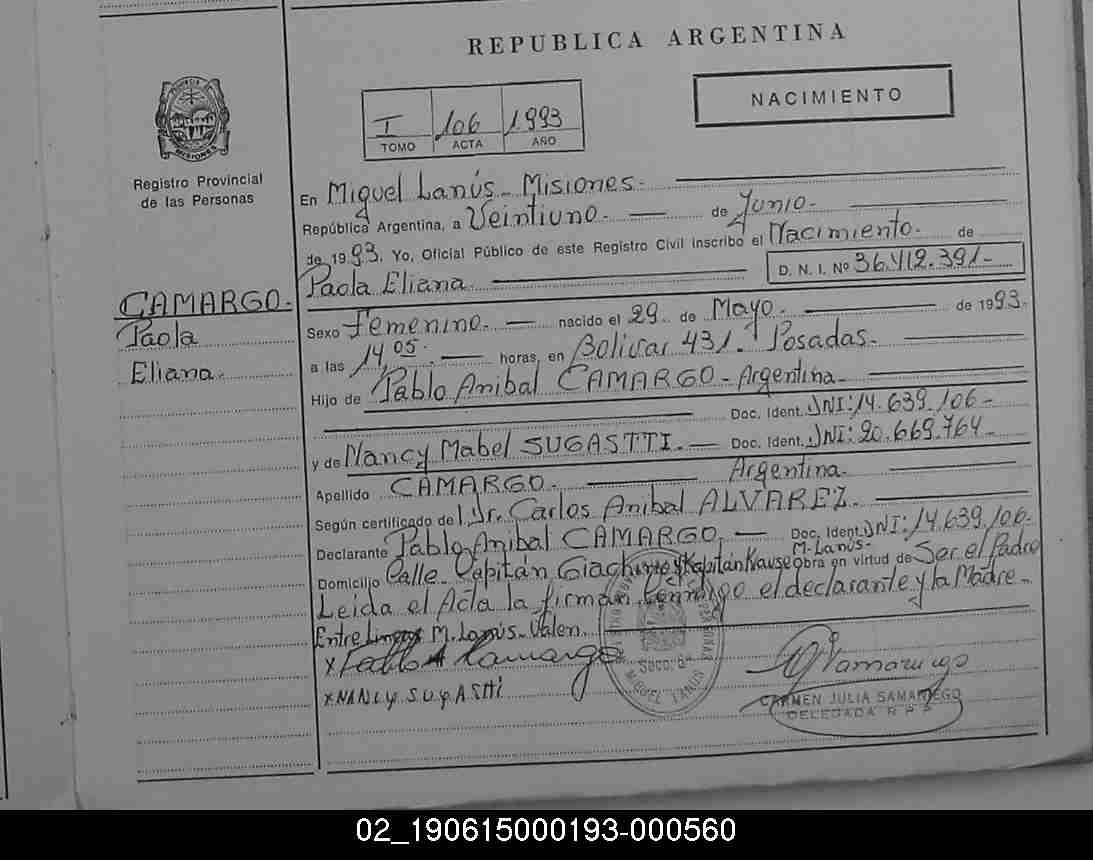 REPUBLICA ARGENTINA
NACIMIENTO
I 106 1993
TOMO ACTA AÑO
PROVINCIA
MISIONES
Registro Provincial
de las Personas
CAMARGO-
Paola
Eliana.
En Miguel Lanús- Misiones-
República Argentina, a Veintiuno. de Junio-
de 1993. Yo, Oficial Público de este Registro Civil inscribo el Nacimiento. de
Paola Eliana D. N. I. Nº 36.412.391-
Sexo Femenino. nacido el 29 de Mayo. de 1993.
a las 14,05. horas, en Bolivar 431. Posadas.
Hijo de Pablo Anibal CAMARGO- Argentina-
Doc. Ident. DNI: 14.639.106-
y de Nancy Mabel SUGASTTI. Doc. Ident. DNI: 20.669.764-
Argentina.
Apellido CAMARGO.
Según certificado del Dr. Carlos Anibal ALVAREZ.
Declarante Pablo Anibal CAMARGO. Doc. Ident. DNI: 14.639.106.
M. Lanús-
Domicilio Calle Capitán y Kapitán Kause obra en virtud de Ser el Padre
Leida el Acta la firman Conmigo el declarante y la Madre-
Entre Lineas M. Lanús- Valen.
x Pablo A Camargo
x NANCY SUGASTTI
Secc. 8ª
MIGUEL LANUS
CARMEN JULIA SAMANIEGO
DELEGADA R P P
02_190615000193-000560